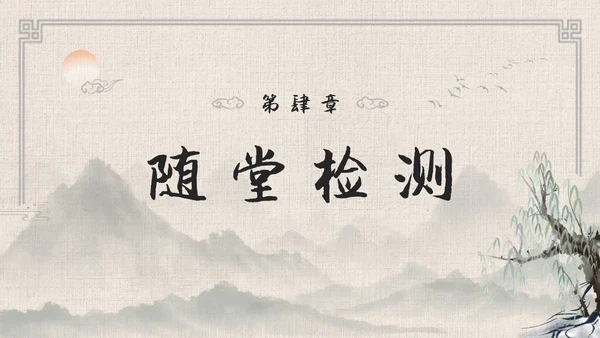 第肆章
随堂检测